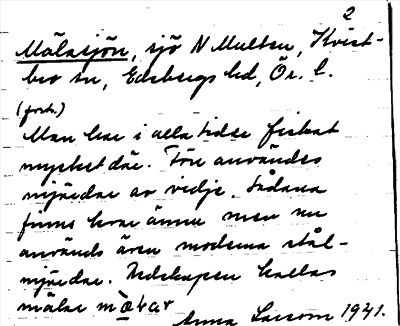 2
Mälasjön, sjö N Multen, Kvist-
bro sn, Edsbergs hd, Ör. l.
(forts.)
Man har i alla tider fiskat
mycket där. Förr användes
mjärdar av vidje. Sådana
finns kvar ännu men nu
används även moderna stål-
mjärdar. Redskapen kallas
mälar
Anna Larsson 1941.